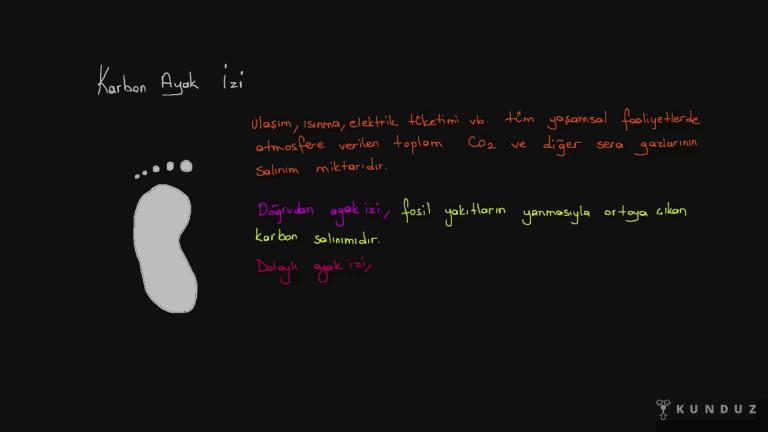 Karbon Ayak İzi
Ulaşım, ısınma, elektrik tüketimi vb. tüm yaşamsal faaliyetlerde
atmosfere verilen toplam CO2 ve diğer sera gazlarının
salınım miktarıdır.
Doğrudan ayak izi, fosil yakıtların yanmasıyla ortaya çıkan
karbon salınımıdır.
Dolaylı ayak izi,
KUNDUZ